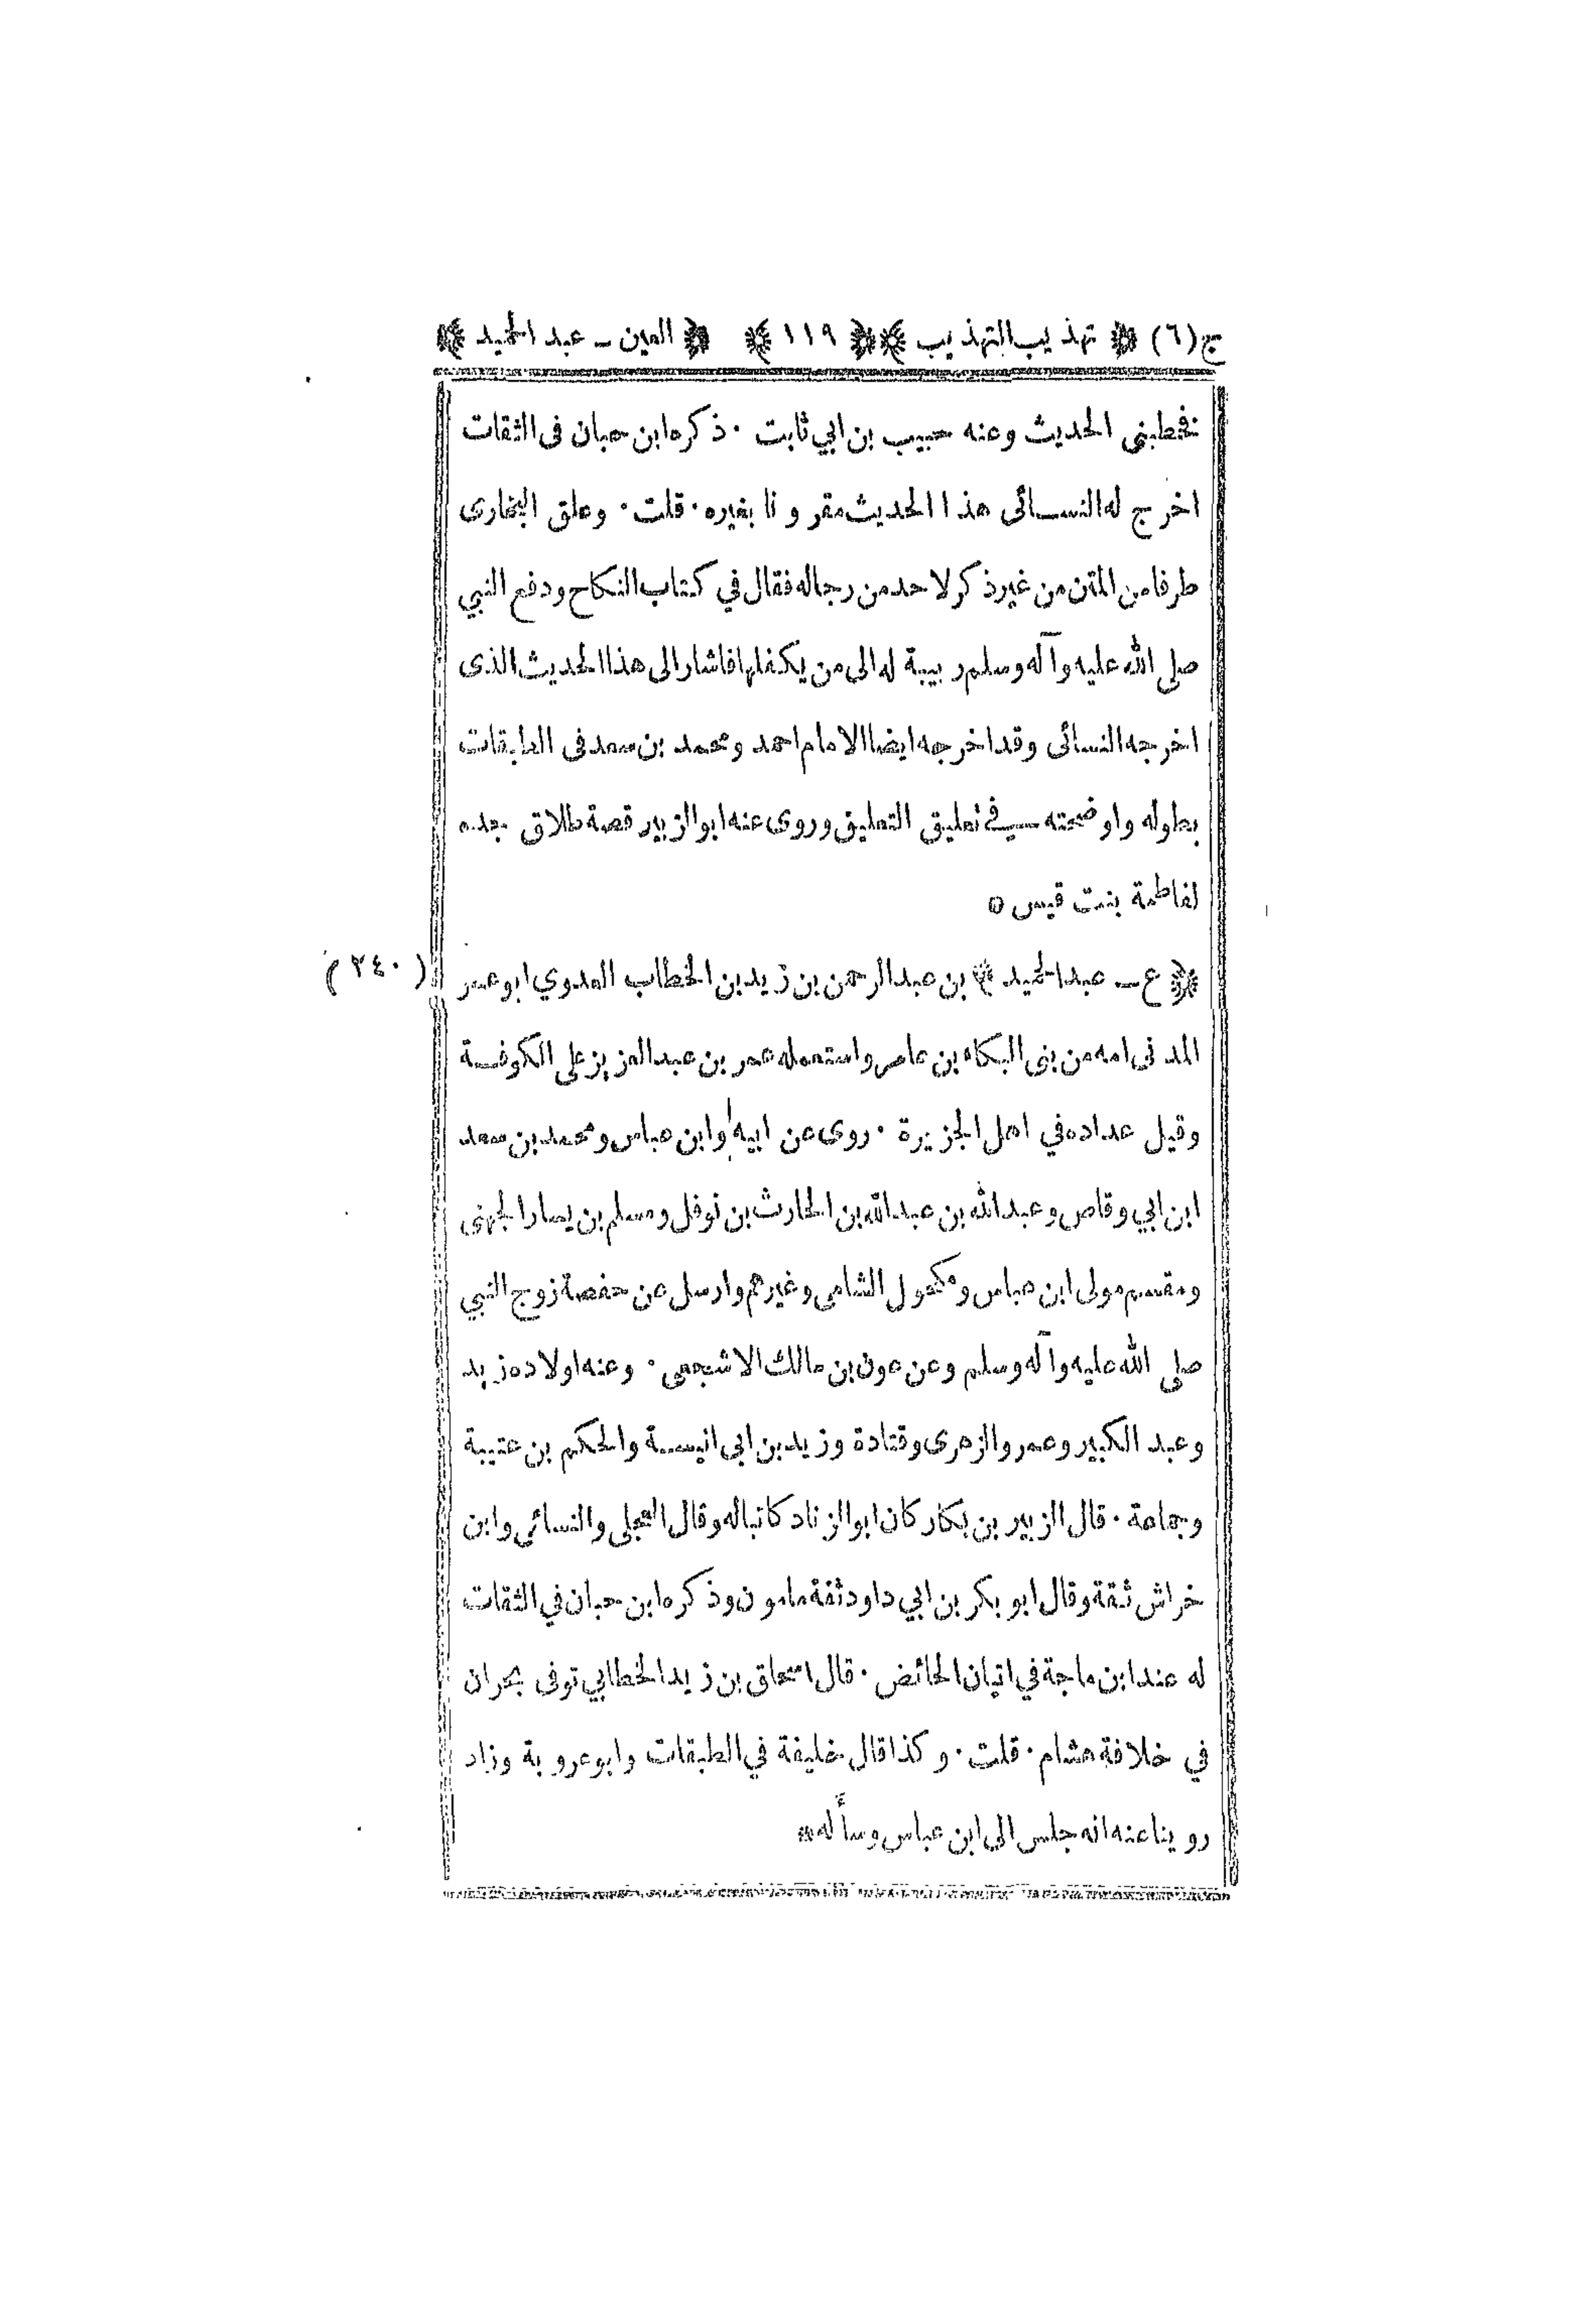 ج(٦) ﴿ تهذيب التهذيب ﴾ ﴿ ١١٩ ﴾ ﴿ العين ـ عبد الحميد ﴾
فخطبني الحديث وعنه حبيب بن ابي ثابت ٠ ذكره ابن حبان فى الثقات
اخرج له النسائى هذا الحديث مقرونا بغيره ٠ قلت ٠ وعلق البخارى
طرفا من المتن من غير ذكر لاحد من رجاله فقال في كتاب النكاح ودفع النبي
صلى الله عليه وآله وسلم ربيبة له الى من يكفلها فاشار الى هذا الحديث الذى
اخرجه النسائى وقد اخرجه ايضا الامام احمد ومحمد بن سعد فى الطبقات
بطوله واوضحته في تعليق التعليق وروى عنه ابو الزبير قصة طلاق جده
لفاطمة بنت قيس ٥
﴿ ع ـ عبد الحميد ﴾ بن عبد الرحمن بن زيد بن الخطاب العدوي ابو عمر
(٢٤٠)
المدنى امه من بنى البكاء بن عامر واستعمله عمر بن عبد العزيز على الكوفة
وقيل عداده في اهل الجزيرة ٠ روى عن ابيه وابن عباس ومحمد بن سعد
ابن ابي وقاص وعبد الله بن عبد الله بن الحارث بن نوفل ومسلم بن يسار الجهنى
ومقسم مولى ابن عباس ومكحول الشامى وغيرهم وارسل عن حفصة زوج النبي
صلى الله عليه وآله وسلم وعن عون بن مالك الاشجعى ٠ وعنه اولاده زيد
وعبد الكبير وعمر والزهرى وقتادة وزيد بن ابى انيسة والحكم بن عتيبة
وجماعة ٠ قال الزبير بن بكار كان ابو الزناد كاتبا له وقال العجلى والنسائى وابن
خراش ثقة وقال ابو بكر بن ابي داود ثقة مامون وذكره ابن حبان في الثقات
له عند ابن ماجة في اتيان الحائض ٠ قال اسحاق بن زيد الخطابي توفى بحران
في خلافة هشام ٠ قلت ٠ وكذا قال خليفة في الطبقات وابو عروبة وزاد
روينا عنه انه جلس الى ابن عباس وسأله *